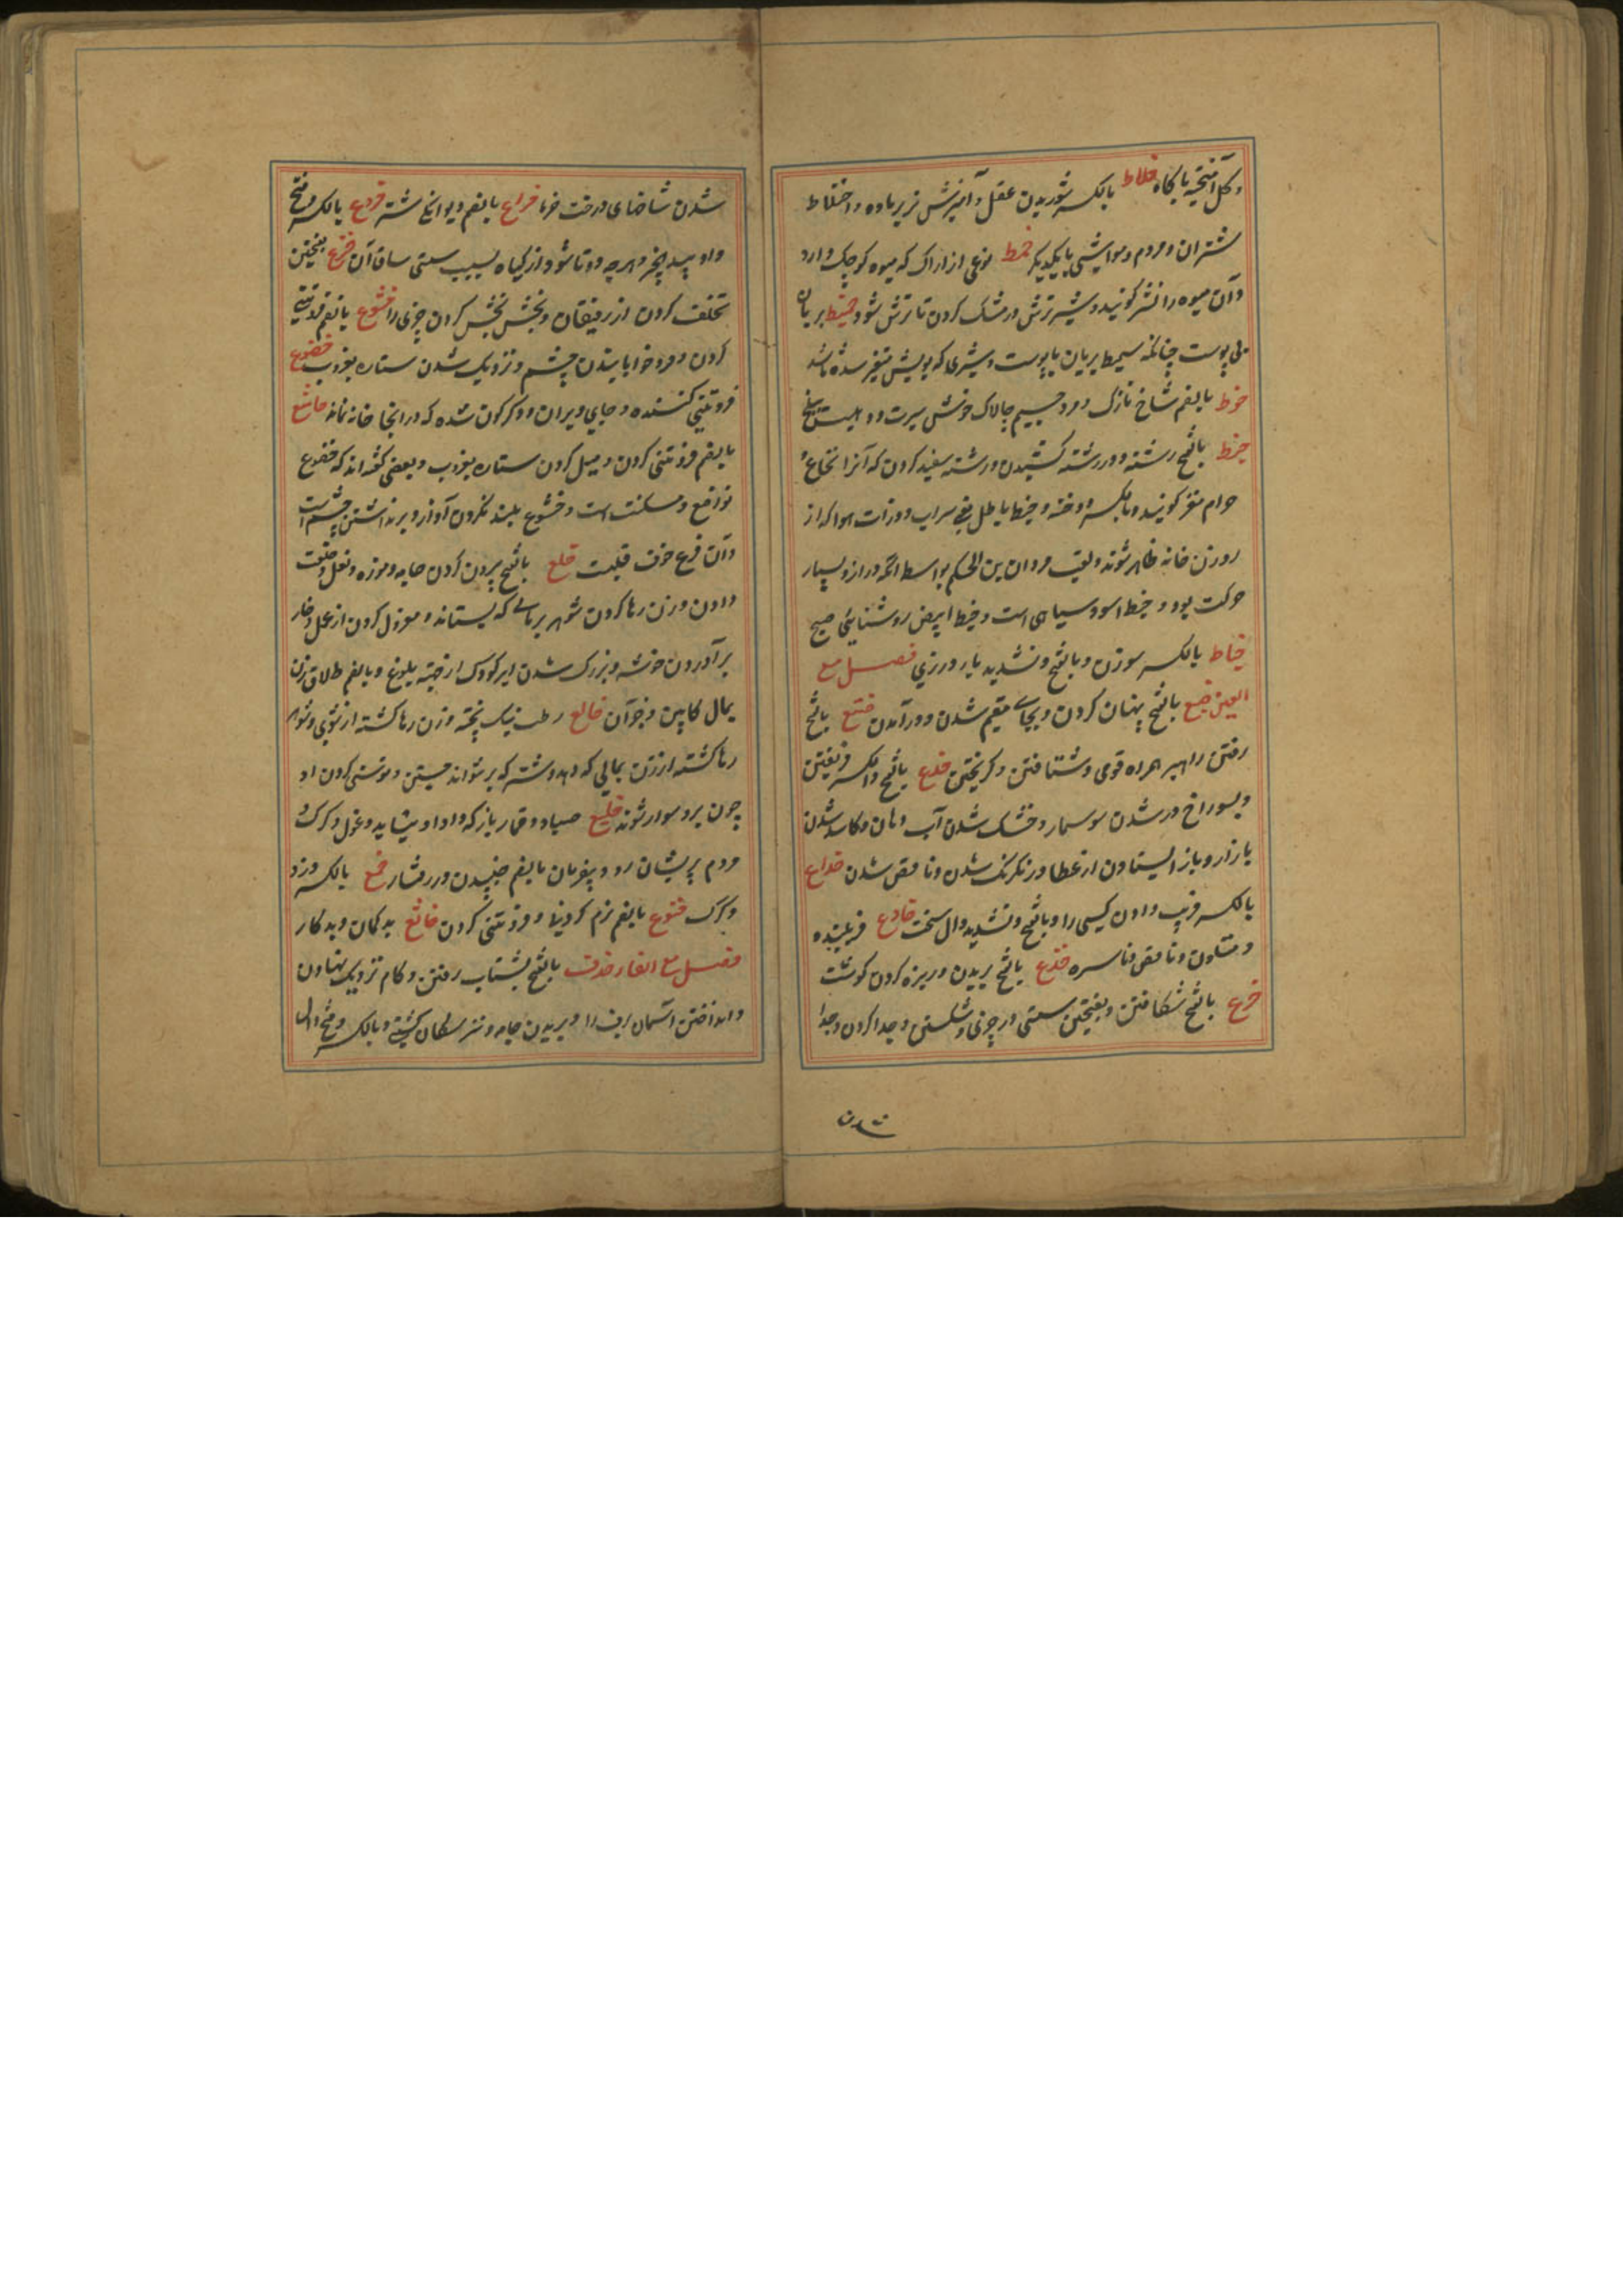 و گل آمیخته با کاه خلاط بالکسر شوریدن عقل و آمیزش نر بر ماده و اختلاط
شتران و مردم و مواشی با یکدیگر خمط نوعی از اراک که میوه کوچک دارد
و آن میوه را نشر کویند و شیر ترش و در مشک کردن تا ترش شود خمیط بریان
بی پوست چنانکه سمیط بریان با پوست و شیری که بویش متغیر شده باشد
خوط بالضم شاخ نازک و مرد جسیم چالاک خوش سیرت و
خیط بالفتح رشته و در رشته کشیدن و رشته سفید کردن که آنرا نخاع و
حرام مغز کویند و بالکسر و خیط باطل یعنی سراب و ذرات هوا که از
روزن خانه ظاهر شوند و لقب مروان بن الحکم بواسطه انکه دراز و بسیار
حرکت بود و خیط اسود سیاهی است و خیط ابیض روشنایی صبح
خیاط بالکسر سوزن و بالفتح و تشدید یا درزی فصل مع
العین خبع بالفتح پنهان کردن و بجای مقیم شدن و در آمدن ختع بالفتح
رفتن راهبر همراه قومی و شتافتن و کریختن خدع بالفتح و الکسر فریفتن
و بسوراخ در شدن سوسمار و خشک شدن آب دهان و کاسد شدن
بازار و باز ایستادن از عطا و رنکرنک شدن و ناقص شدن خداع
بالکسر فریب دادن کسی را و بالفتح و تشدید دال سخت خادع فریبنده
و متلون و ناقص و ناسره خذع بالفتح بریدن و ریزه کردن کوشت
خرع بالفتح شکافتن و بفتحتین سستی در چیزی و شکستن و جدا کردن و جدا
شدن
شدن شاخهای درخت خرما خراع بالضم دیوانکی شتر خروع بالکسر و فتح
واو بید انجیر و هر چه دوتا شود از کیاه بسبب سستی ساق آن خزع بفتحتین
تخلف کردن از رفیقان و بخش بخش کردن چیزی را خشوع بالضم فروتنی
کردن و فرو خوابانیدن چشم و نزدیک شدن ستاره بغروب خضوع
فروتنی کننده و جای ویران و دکرکون شده که در انجا خانه نماند خاشع
بالضم فروتنی کردن و میل کردن ستاره بغروب و بعضی کفته اند که خضوع
تواضع و مسکنت است و خشوع بلند نکردن آواز و برنداشتن چشم است
و آن فرع خوف قلبست خلع بالفتح بیرون کردن جامه و موزه و نعل و خلعت
دادن و زن رها کردن شوهر بمالی که بستاند و معزول کردن از عمل و خار
بر آوردن خوشه و بزرک شدن ایر کودک از ختنه ببلوغ و بالضم طلاق زن
بمال کابین و جز آن خالع رطب نیک پخته و زن رها کشته از شوی و شوهر
رها کشته از زن بمالی که دهد و شتر که بر نتواند جستن و سستی کردن او
چون برو سوار شوند خلیع صیاد و قمار باز که داد او نشاید و غول و کرک
مردم پریشان رو و بیفرمان بالضم جنبیدن در رفتار خمع بالکسر دزد
و کرک خنوع بالضم نرم کردنها و فروتنی کردن خانع بد کمان و بد کار
فصل مع الفا خذف بالفتح بشتاب رفتن و کام نزدیک نهادن
و انداختن آسمان برف را و بریدن جامه و سکان کشتی و بالکسر و فتح دال